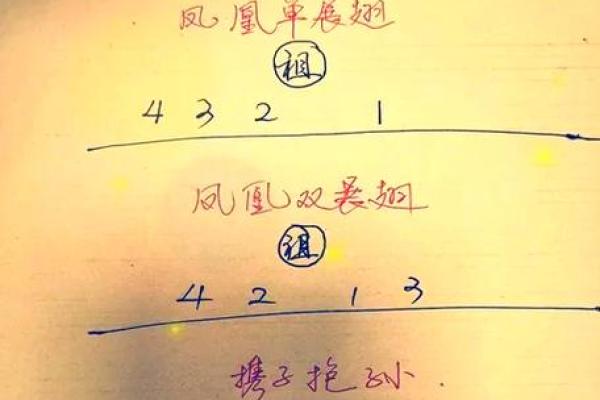 凤凰单展翅
祖
4 3 2 1
凤凰双展翅
祖
4 2 1 3
携子抱孙